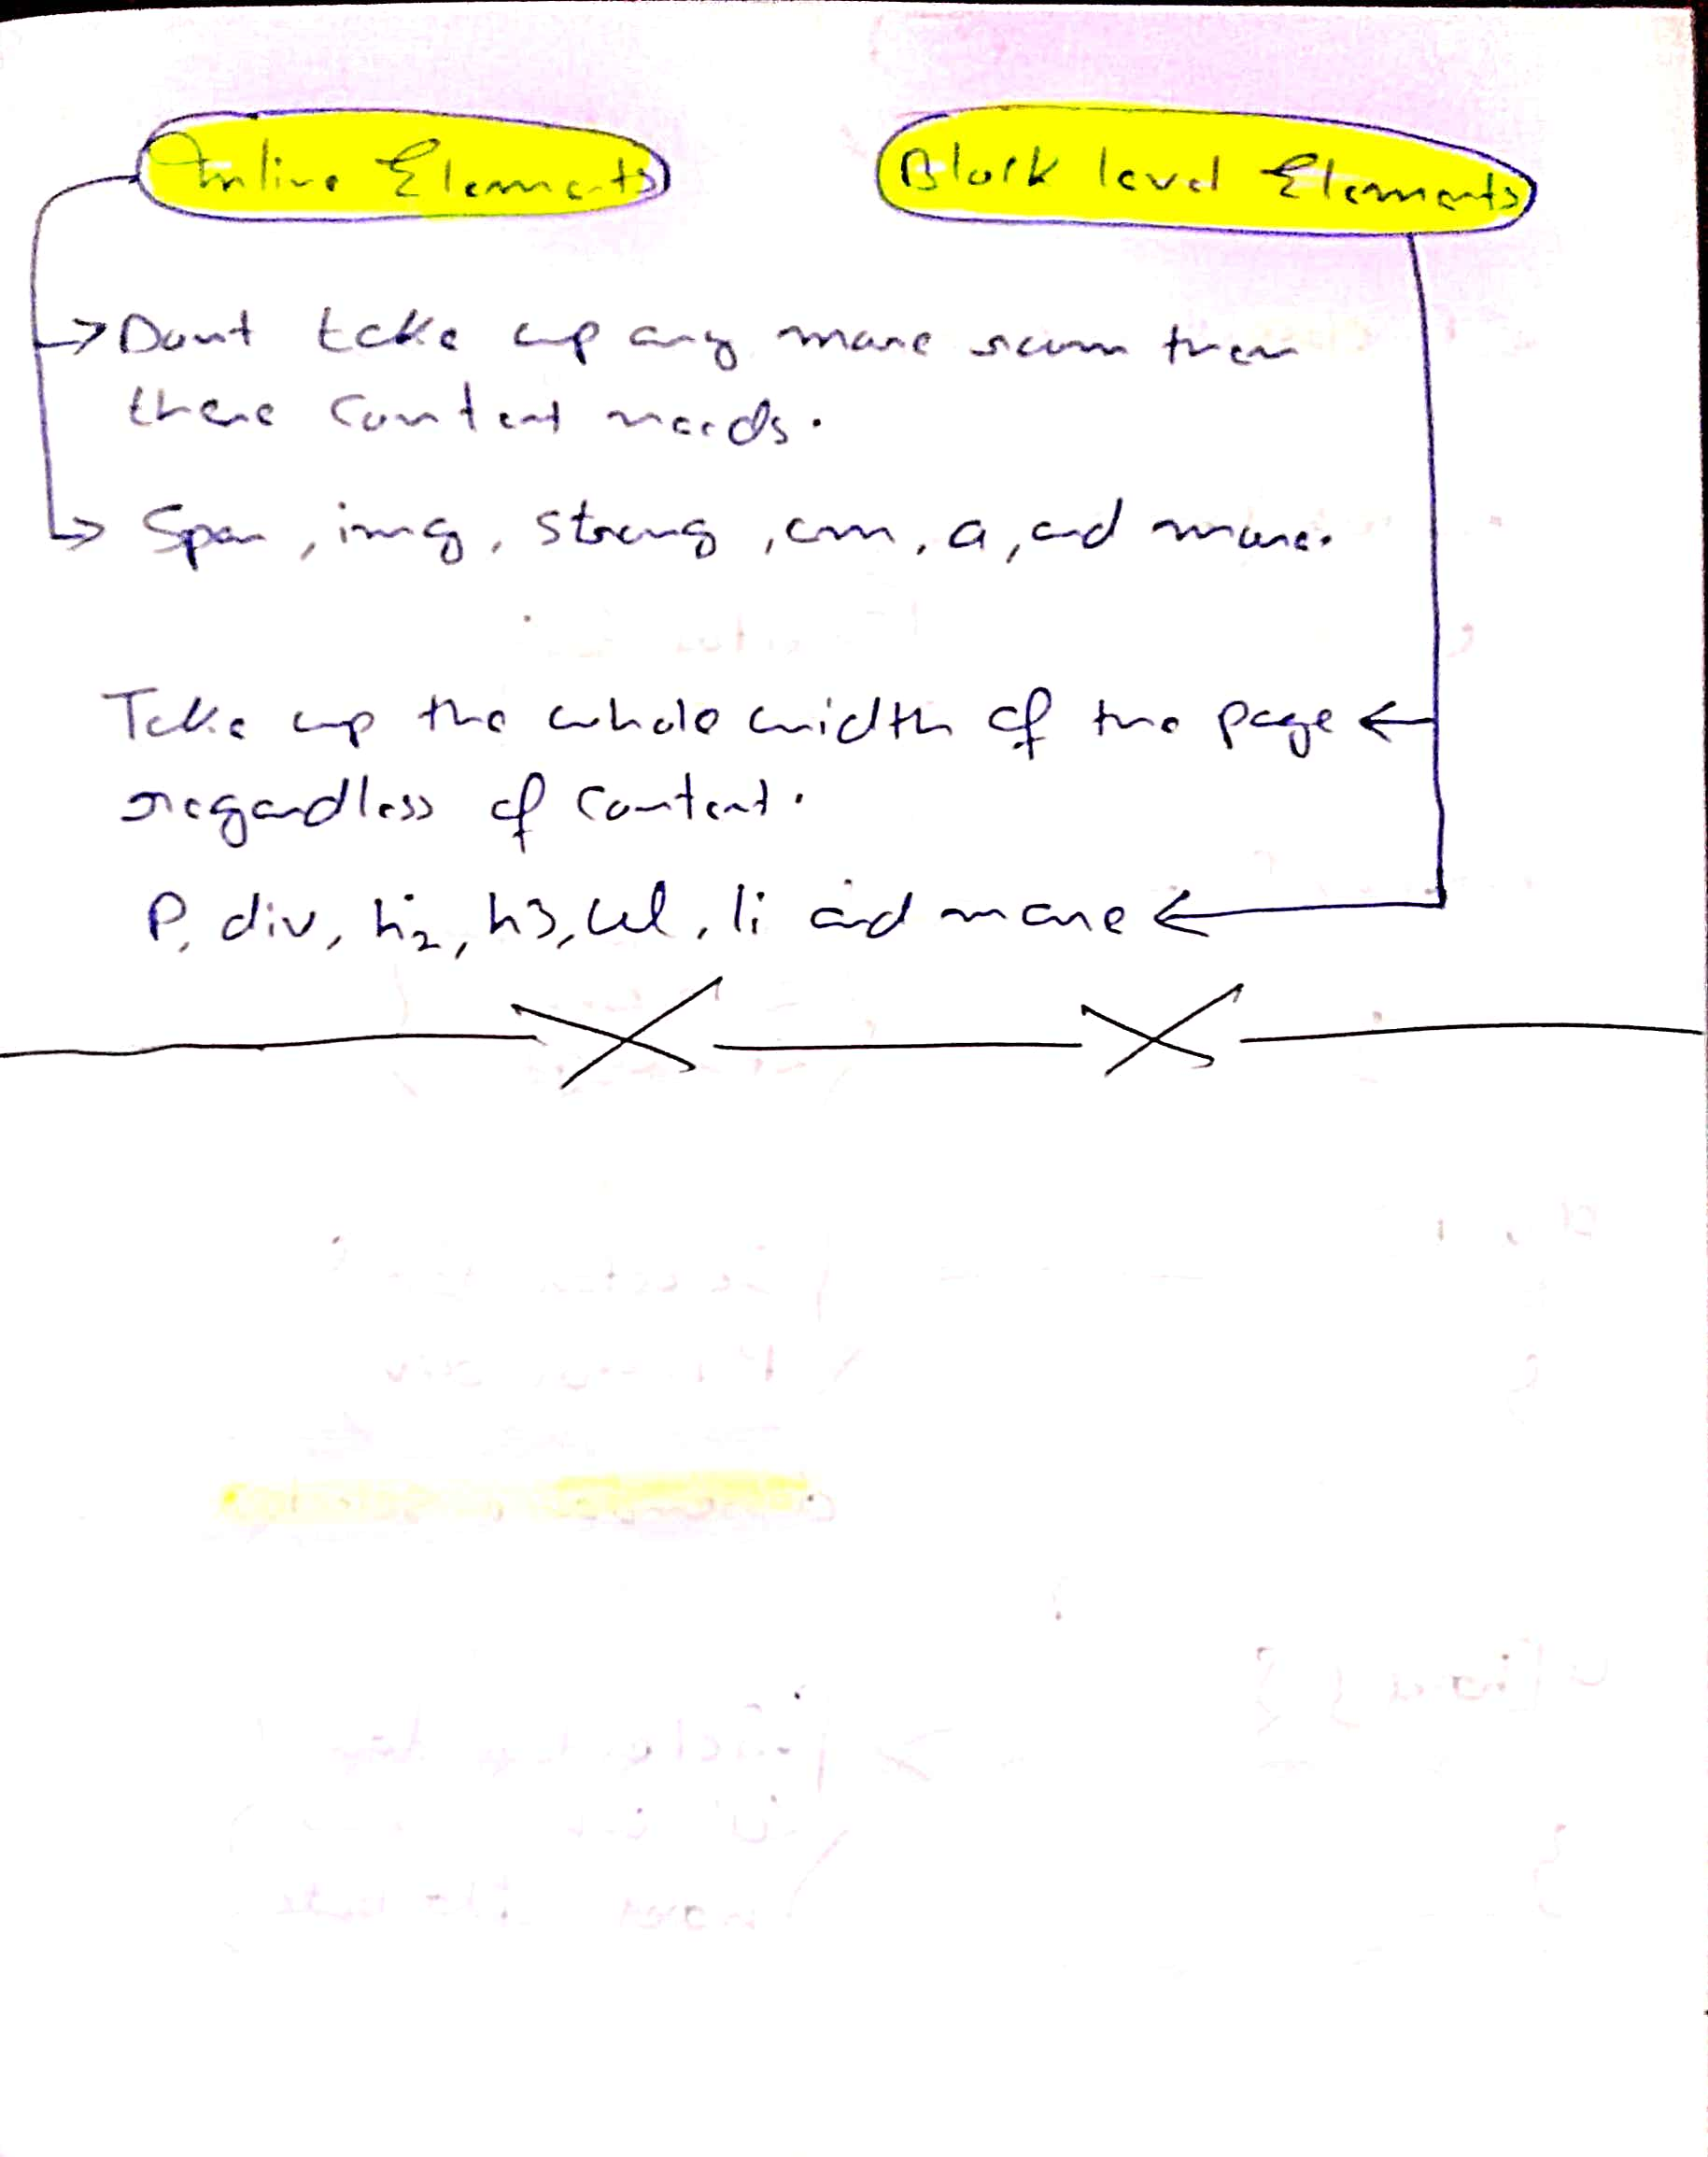 Inline Elements
Block level Elements
→ Dont take up any more room then
there content needs.
→ Span, img, strong, em, a, and more.
Take up the whole width of the page ←
regardless of content.
P, div, h2, h3, ul, li and more ←